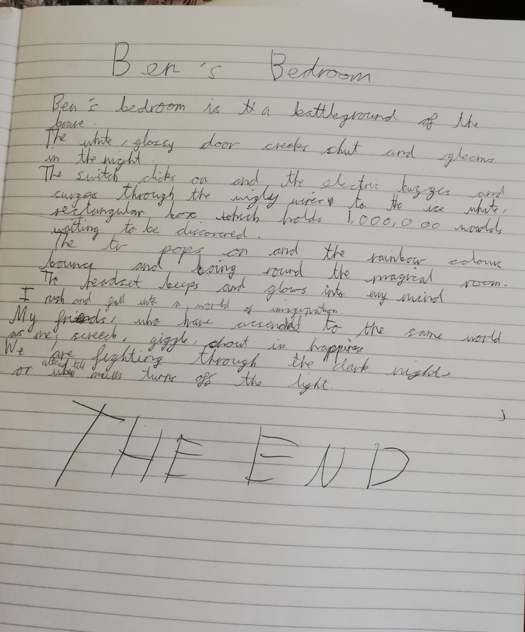 Ben's Bedroom
Ben's bedroom is a battleground of the
brave.
The white, glossy door creaks shut and gleams
in the night.
The switch clicks on and the electric buzzes and
surges through the wigly wires to the ice white,
rectangular box which holds 1,000,000 worlds
waiting to be discovered.
The tv pops on and the rainbow colours
bounce and boing round the magical room.
The headset beeps and glows into my mind
I rush and fall into a world of imagination.
My friends, who have ascended to the same world
as me, screech, giggle, shout in happiness
We are fighting through the dark night
or until mum turns off the light.
THE END